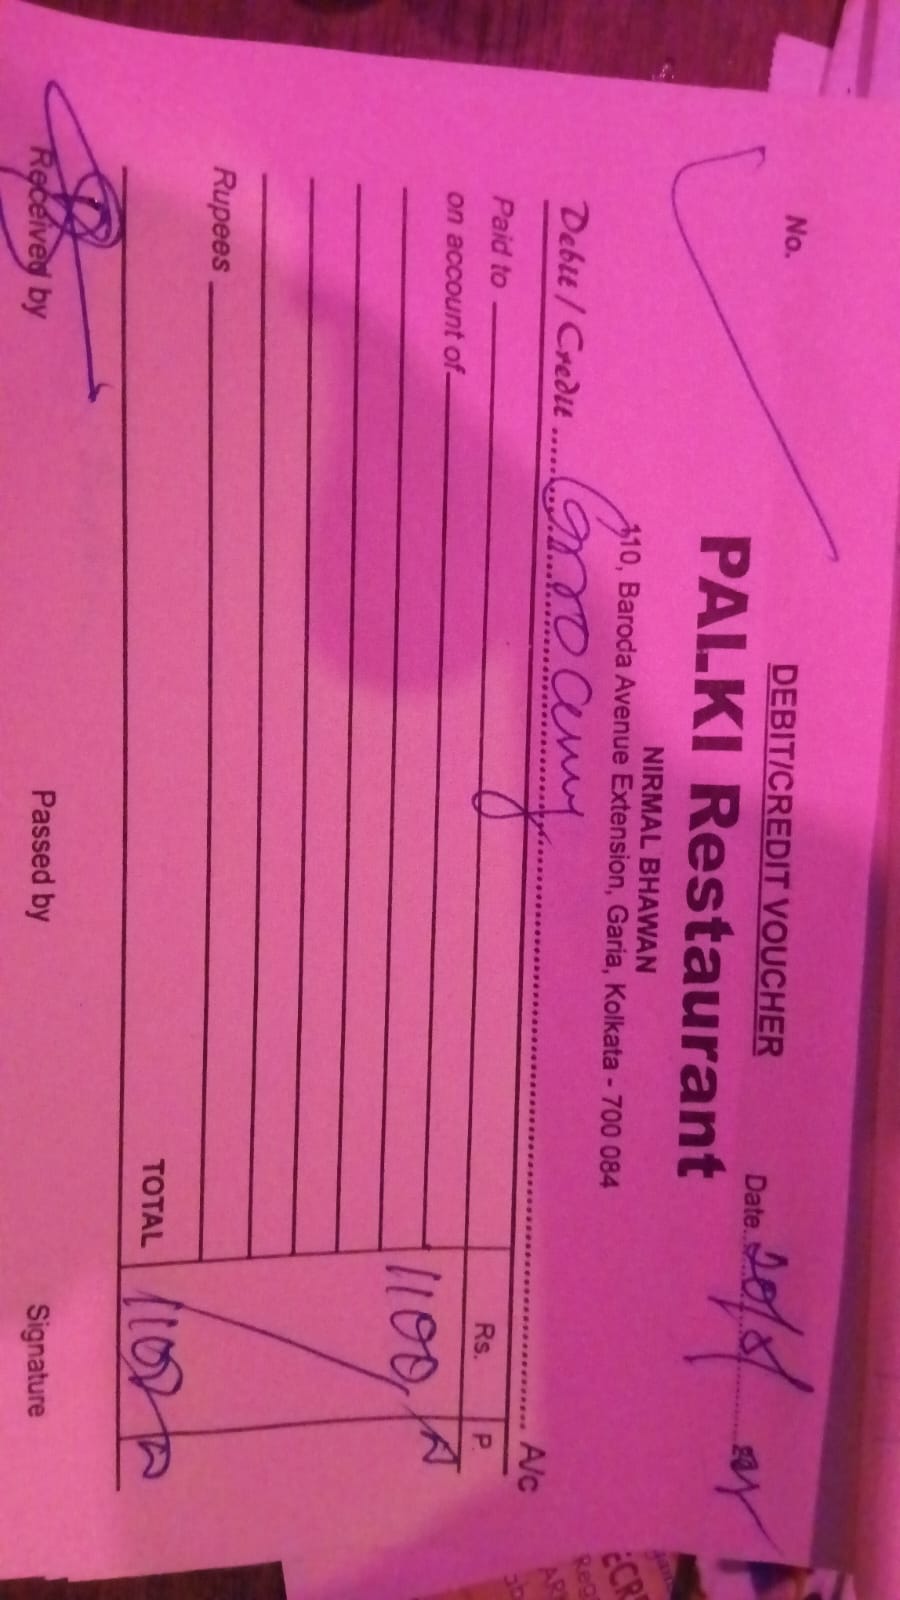 DEBIT/CREDIT VOUCHER
No.
Date
PALKI Restaurant
NIRMAL BHAWAN
110, Baroda Avenue Extension, Garia, Kolkata - 700 084
Debit / Credit ........ A/c
Paid to
Rs. P.
on account of
1100
Rupees
TOTAL 1100
Received by Passed by Signature